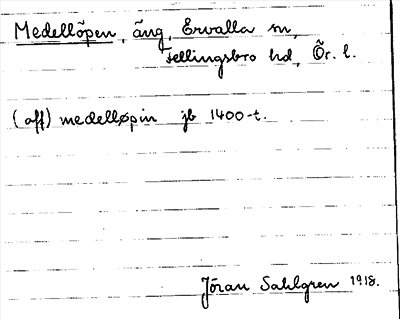 Medellöpen, äng, Ervalla sn,
Fellingsbro hd, Ör. l.
(aff) medelløpin jb 1400-t.
Jöran Sahlgren 1918.